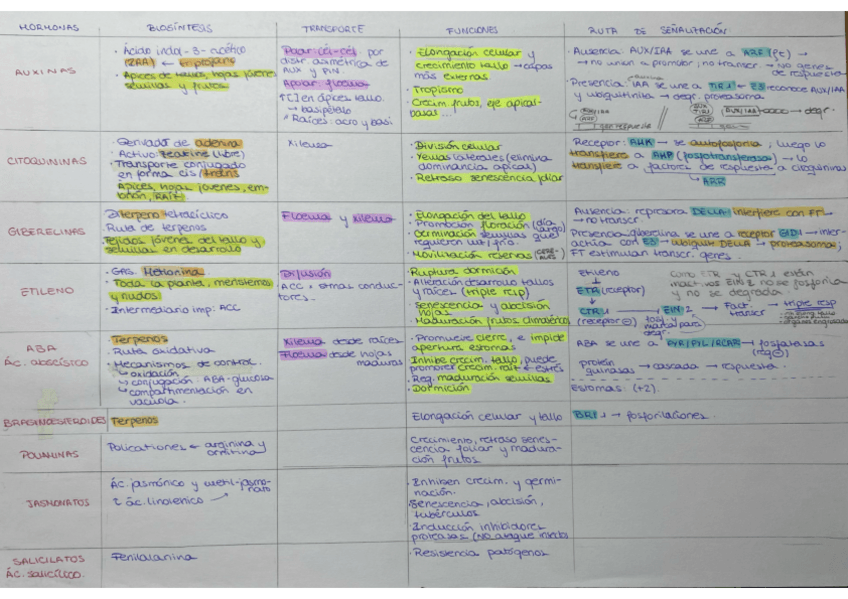 HORMONAS BIOSÍNTESIS TRANSPORTE FUNCIONES RUTA DE SEÑALIZACIÓN
AUXINAS
· Ácido indol-3-acético
(IAA) ← triptófano
· Ápices de tallos, hojas jóvenes
semillas y frutos
Polar: cél-cél. por
distr asimétrica de
AUX y PIN.
Apolar: floema
↑[ ] en ápices tallo.
→ basipétalo
* Raíces: acro y basi
· Elongación celular y
crecimiento tallo → capas
más externas
· Tropismo
· Crecim frutos, eje apical-
basal...
Ausencia: AUX/IAA se une a ARF (ft) →
→ no unión a promotor, no transcr. → no genes
de respuesta
Presencia: IAA se une a TIR1 + E3 reconoce AUX/IAA
y ubiquitiniza → degr. proteasoma
AUX/IAA
ARF
gen respuesta
AUX
TIR1
AUX/IAA
→ degr.
CITOQUININAS
· Derivado de adenina
· Activo: zeatina (libre)
· Transporte conjugado
en forma cis/trans
Ápices, hojas jóvenes, em-
brión, RAÍZ
Xilema
· División celular
· Yemas laterales (elimina
dominancia apical)
· Retraso senescencia foliar
Receptor: AHK → se autofosforila, luego lo
transfiere a AHP (fosfotransferasa) → lo
transfiere a factores de respuesta a citoquininas
↳ ARR
GIBERELINAS
· Diterpeno tetracíclico
· Ruta de terpenos
· Tejidos jóvenes del tallo y
semillas en desarrollo
Floema y xilema
· Elongación del tallo
· Promoción floración (día largo)
· Germinación semillas que
requieren luz/frío.
· Movilización reservas (CEREALES)
Ausencia: represora DELLA interfiere con FT →
→ no transcr.
Presencia: giberelina se une a receptor GID1 → inter-
actúa con E3 → ubiquit DELLA → proteasoma;
FT estimulan transcr. genes.
ETILENO
· GAS. Metionina
· Toda la planta, meristemos
y nudos
· Intermediario imp: ACC
Difusión
ACC → otros conduc-
tores..
· Ruptura dormición
· Alteración desarrollo tallos
y raíces (triple resp)
· Senescencia y abscisión
hojas
· Maduración frutos climatéricos
Etileno
↓
ETR (receptor)
↓
CTR1
(receptor ⊖)
EIN2
→ Fact.
transcr
→ triple resp
Como ETR y CTR1 están
inactivos EIN2 no se fosforila
y no se degrada.
ABA
Ác. abscísico
· Terpenos
· Ruta oxidativa
· Mecanismos de control.
↳ oxidación
↳ conjugación: ABA-glucosa
↳ compartimentación en
vacuola.
Xilema desde raíces
Floema desde hojas
maduras
· Promueve cierre, e impide
apertura estomas
· Inhibe crecim. tallo, puede
promover crecim. raíz ← estrés
· Reg. maduración semillas
· Dormición
ABA se une a PYR/PYL/RCAR → fosfatasas
(reg ⊖)
proteín
quinasas → cascada → respuesta.
estomas: (+2).
BRASINOESTEROIDES Terpenos Elongación celular y tallo BRI1 → fosforilaciones.
POLIAMINAS
Policationes ← arginina y
ornitina
Crecimiento, retraso senes-
cencia foliar y madura-
ción frutos
JASMONATOS
Ác. jasmónico y metil-jasmo-
nato
↑ ác. linolénico
· Inhiben crecim. y germi-
nación.
· Senescencia, abscisión,
tubérculos
· Inducción inhibidores
proteasas (NO ataque insectos
SALICILATOS
Ác. salicílico.
Fenilalanina
· Resistencia patógenos